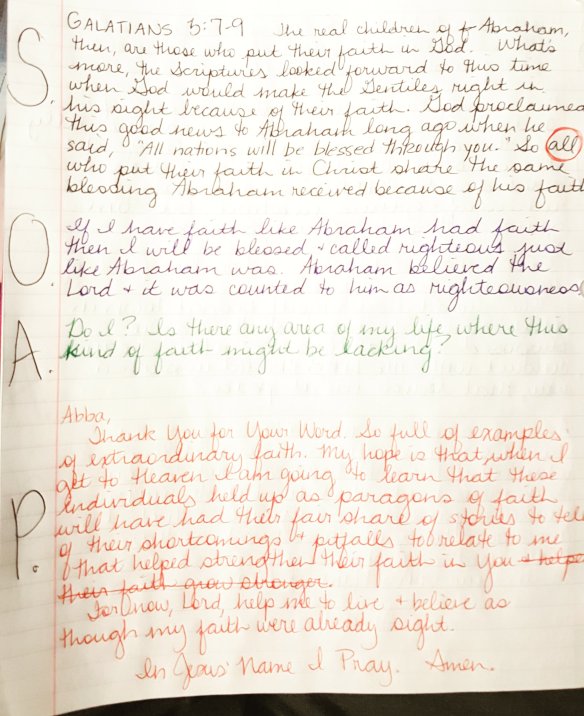 S.
GALATIANS 3:7-9 The real children of Abraham,
then, are those who put their faith in God. What's
more, the Scriptures looked forward to this time
when God would make the Gentiles right in
his sight because of their faith. God proclaimed
this good news to Abraham long ago when he
said, "All nations will be blessed through you." So all
who put their faith in Christ share the same
blessing Abraham received because of his faith
O.
If I have faith like Abraham had faith
then I will be blessed + called righteous just
like Abraham was. Abraham believed the
Lord + it was counted to him as righteousness
A.
Do I? Is there any area of my life where this
kind of faith might be lacking?
P.
Abba,
Thank You for Your Word. So full of examples
of extraordinary faith. My hope is that when I
get to Heaven I am going to learn that these
individuals held up as paragons of faith
will have had their fair share of stories to tell
of their shortcomings + pitfalls to relate to me
that helped strengthen their faith in You + helpe
their faith grow stronger.
For now, Lord, help me to live + believe as
though my faith were already sight.
In Jesus' Name I Pray. Amen.